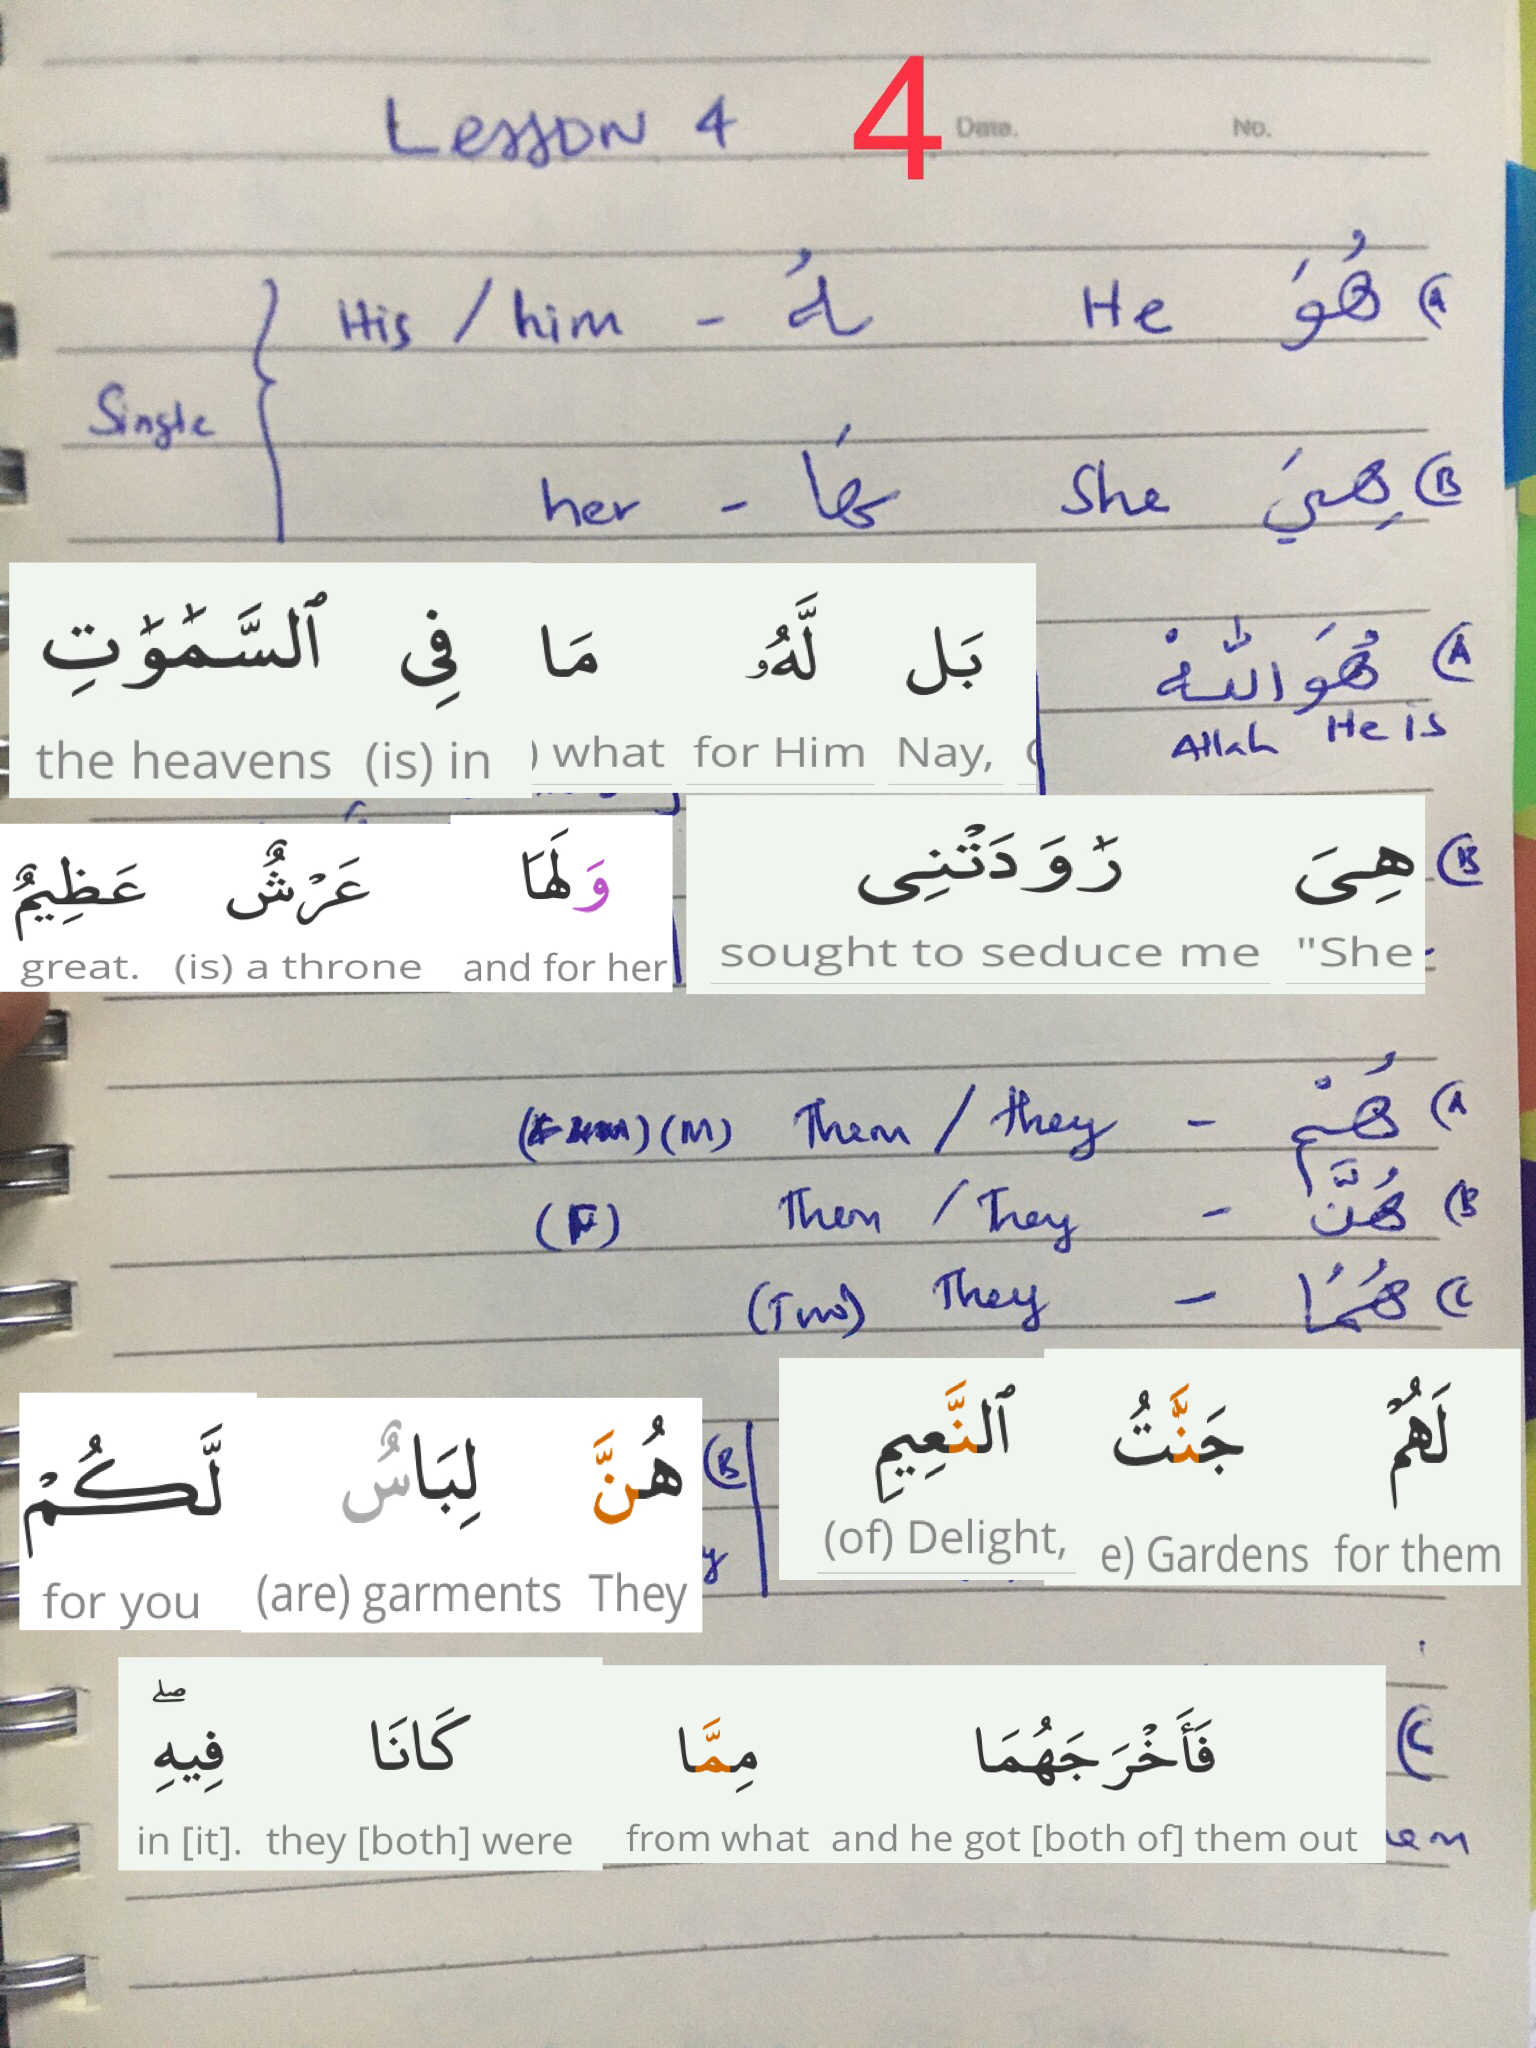 Lesson 4 4 Date. No.
(A هُوَ He هُ - His / him
Single
(B هِيَ She هَا - her
(A هُوَ اللّٰهُ
He is Allah
بَل لَّهُۥ مَا فِى ٱلسَّمَٰوَٰتِ
Nay, for Him ) what (is) in the heavens
(B هِىَ رَٰوَدَتْنِى
"She sought to seduce me
وَلَهَا عَرْشٌ عَظِيمٌ
and for her (is) a throne great.
(A هُمْ - They / Them (M)
(B هُنَّ - They / Them (F)
(C هُمَا - They (Two)
لَهُمْ جَنَّٰتُ ٱلنَّعِيمِ
for them e) Gardens (of) Delight,
(B هُنَّ لِبَاسٌ لَّكُمْ
They (are) garments for you
(C فَأَخْرَجَهُمَا مِمَّا كَانَا فِيهِ ۖ
and he got [both of] them out from what they [both] were in [it].